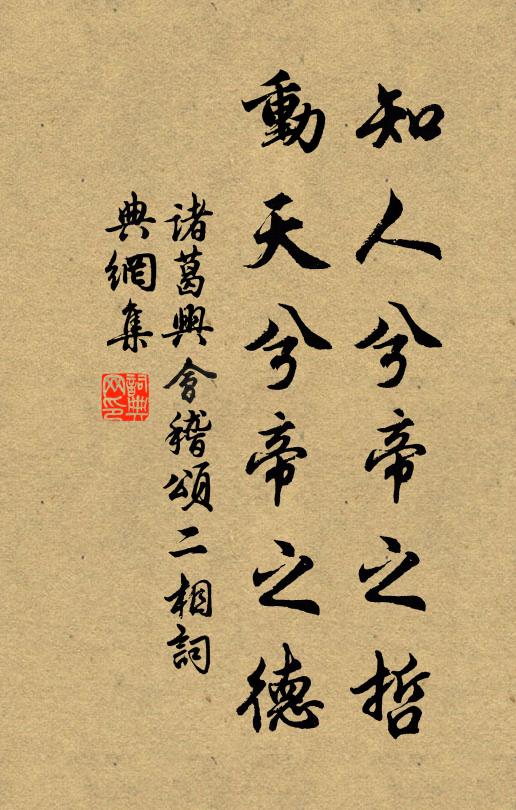 知人兮帝之哲
動天兮帝之德
諸葛興會稽頌二相詞
典網集
詞典網印